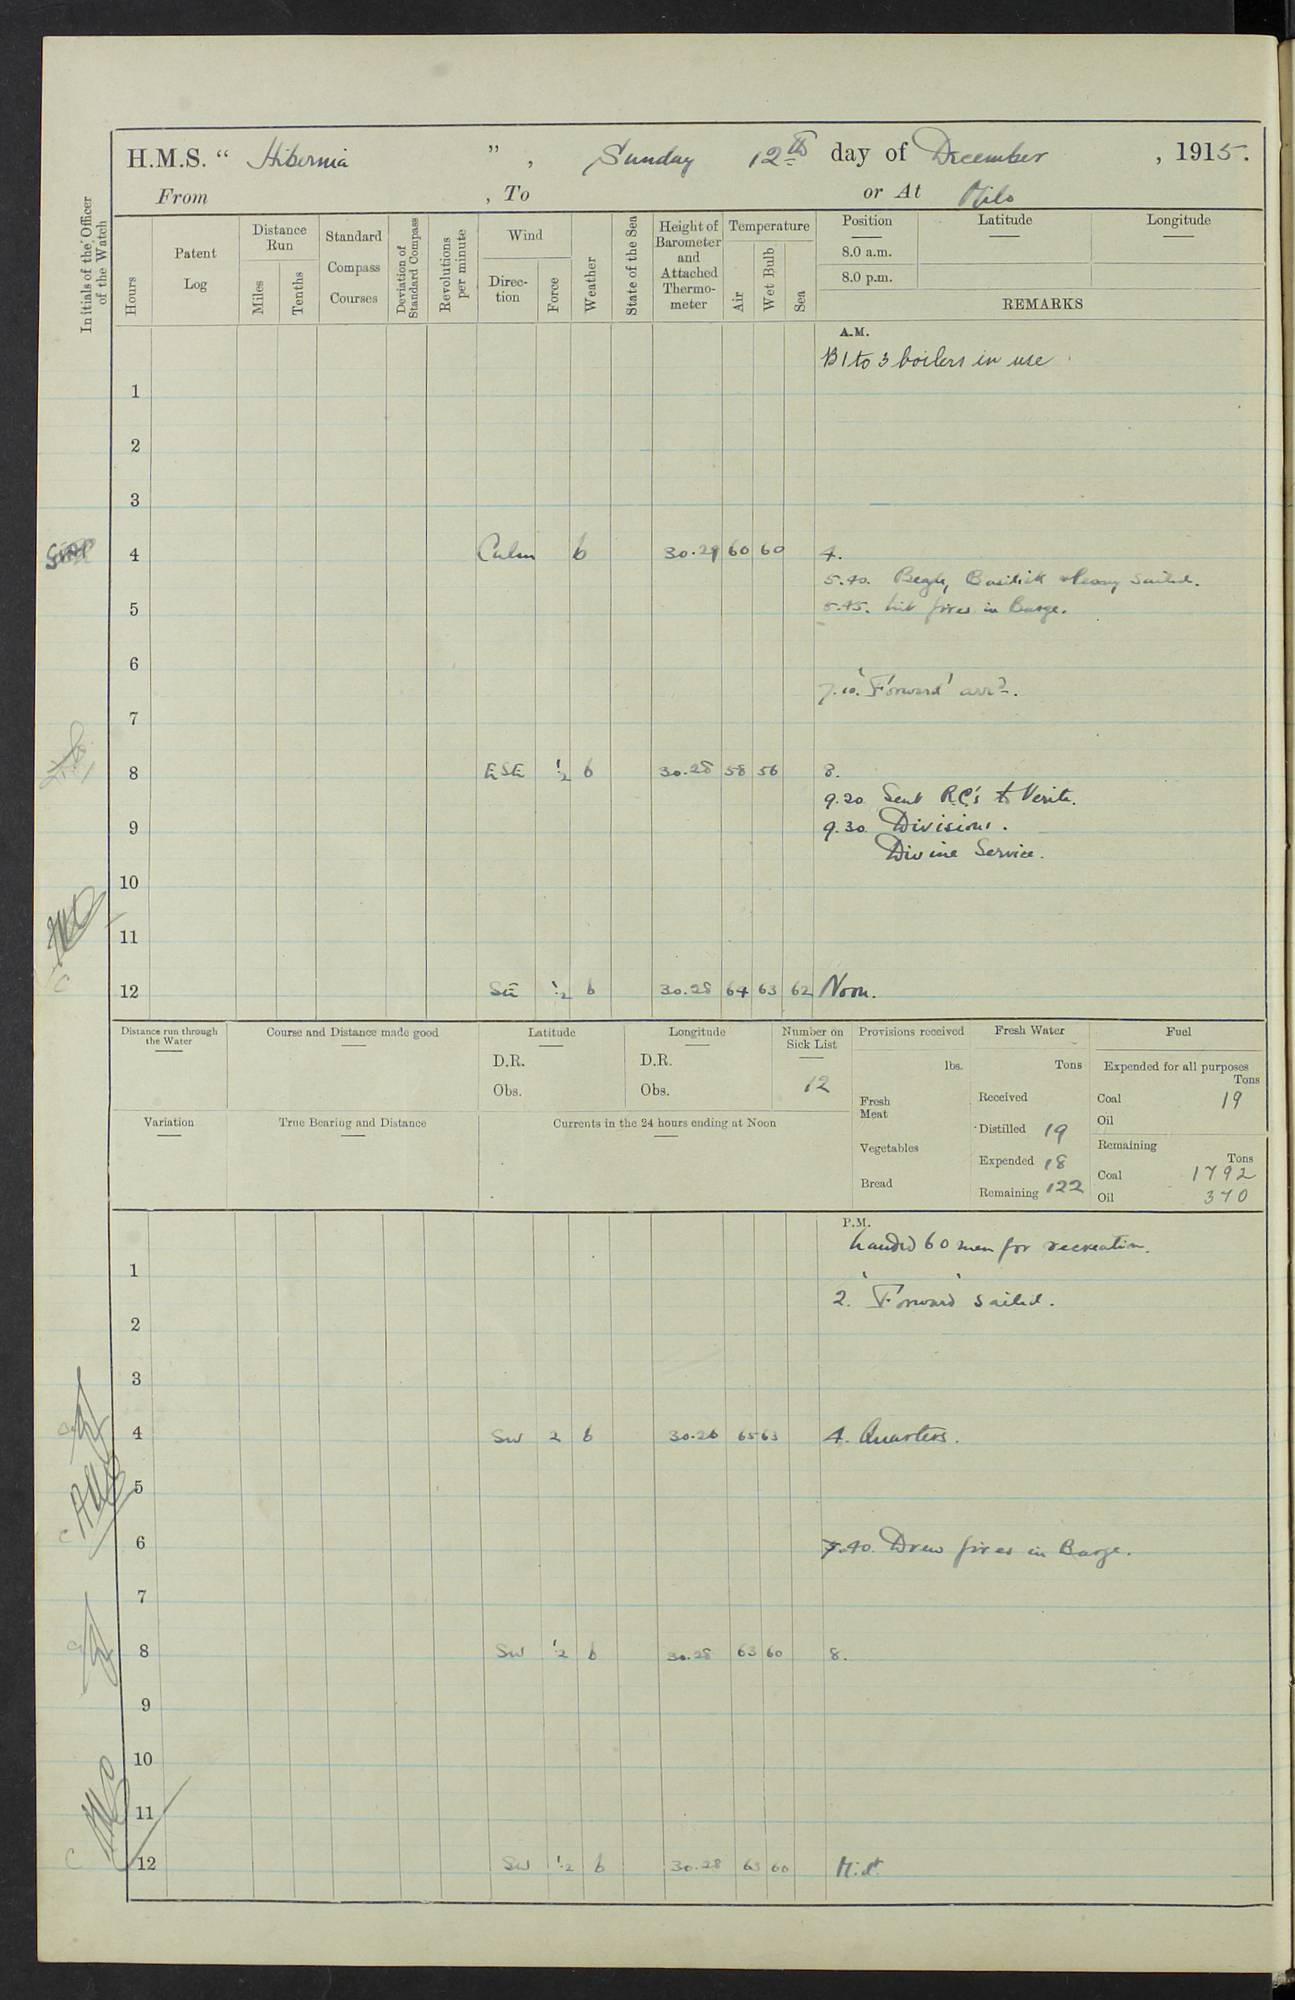 H.M.S. “ Hibernia ” , Sunday 12th day of December , 1915.
From , To or At Milo
Initials of the Officer of the Watch
Hours
Patent Log
Distance Run
Miles
Tenths
Standard Compass Courses
Deviation of Standard Compass
Revolutions per minute
Wind
Direction
Force
Weather
State of the Sea
Height of Barometer and Attached Thermometer
Temperature
Air
Wet Bulb
Sea
Position Latitude Longitude
8.0 a.m.
8.0 p.m.
REMARKS
A.M.
B 1 to 3 boilers in use
1
2
3
4 Calm b 30.29 60 60 4.
5.40. Basilisk sailed.
5 5.45. Lit fires in Barge.
6
7.10. 'Forward' arrd.
7
8 ESE 1/2 b 30.28 58 56 8.
9.20 Sent R.C's to Verité.
9 9.30 Divisions.
Divine Service.
10
11
12 SE 1/2 b 30.28 64 63 62 Noon.
Distance run through the Water
Course and Distance made good
Latitude
D.R.
Obs.
Longitude
D.R.
Obs.
Number on Sick List
12
Provisions received
lbs.
Fresh Meat
Vegetables
Bread
Fresh Water
Tons
Received
Distilled 19
Expended 18
Remaining 122
Fuel
Expended for all purposes
Tons
Coal 19
Oil
Remaining
Tons
Coal 1792
Oil 370
Variation
True Bearing and Distance
Currents in the 24 hours ending at Noon
P.M.
Landed 60 men for recreation.
1
2. 'Forward' sailed.
2
3
4 SW 2 b 30.26 65 63 4. Quarters.
5
6 5.40. Drew fires in Barge.
7
8 SW 1/2 b 30.28 63 60 8.
9
10
11
12 SW 1/2 b 30.28 63 60 Midt.